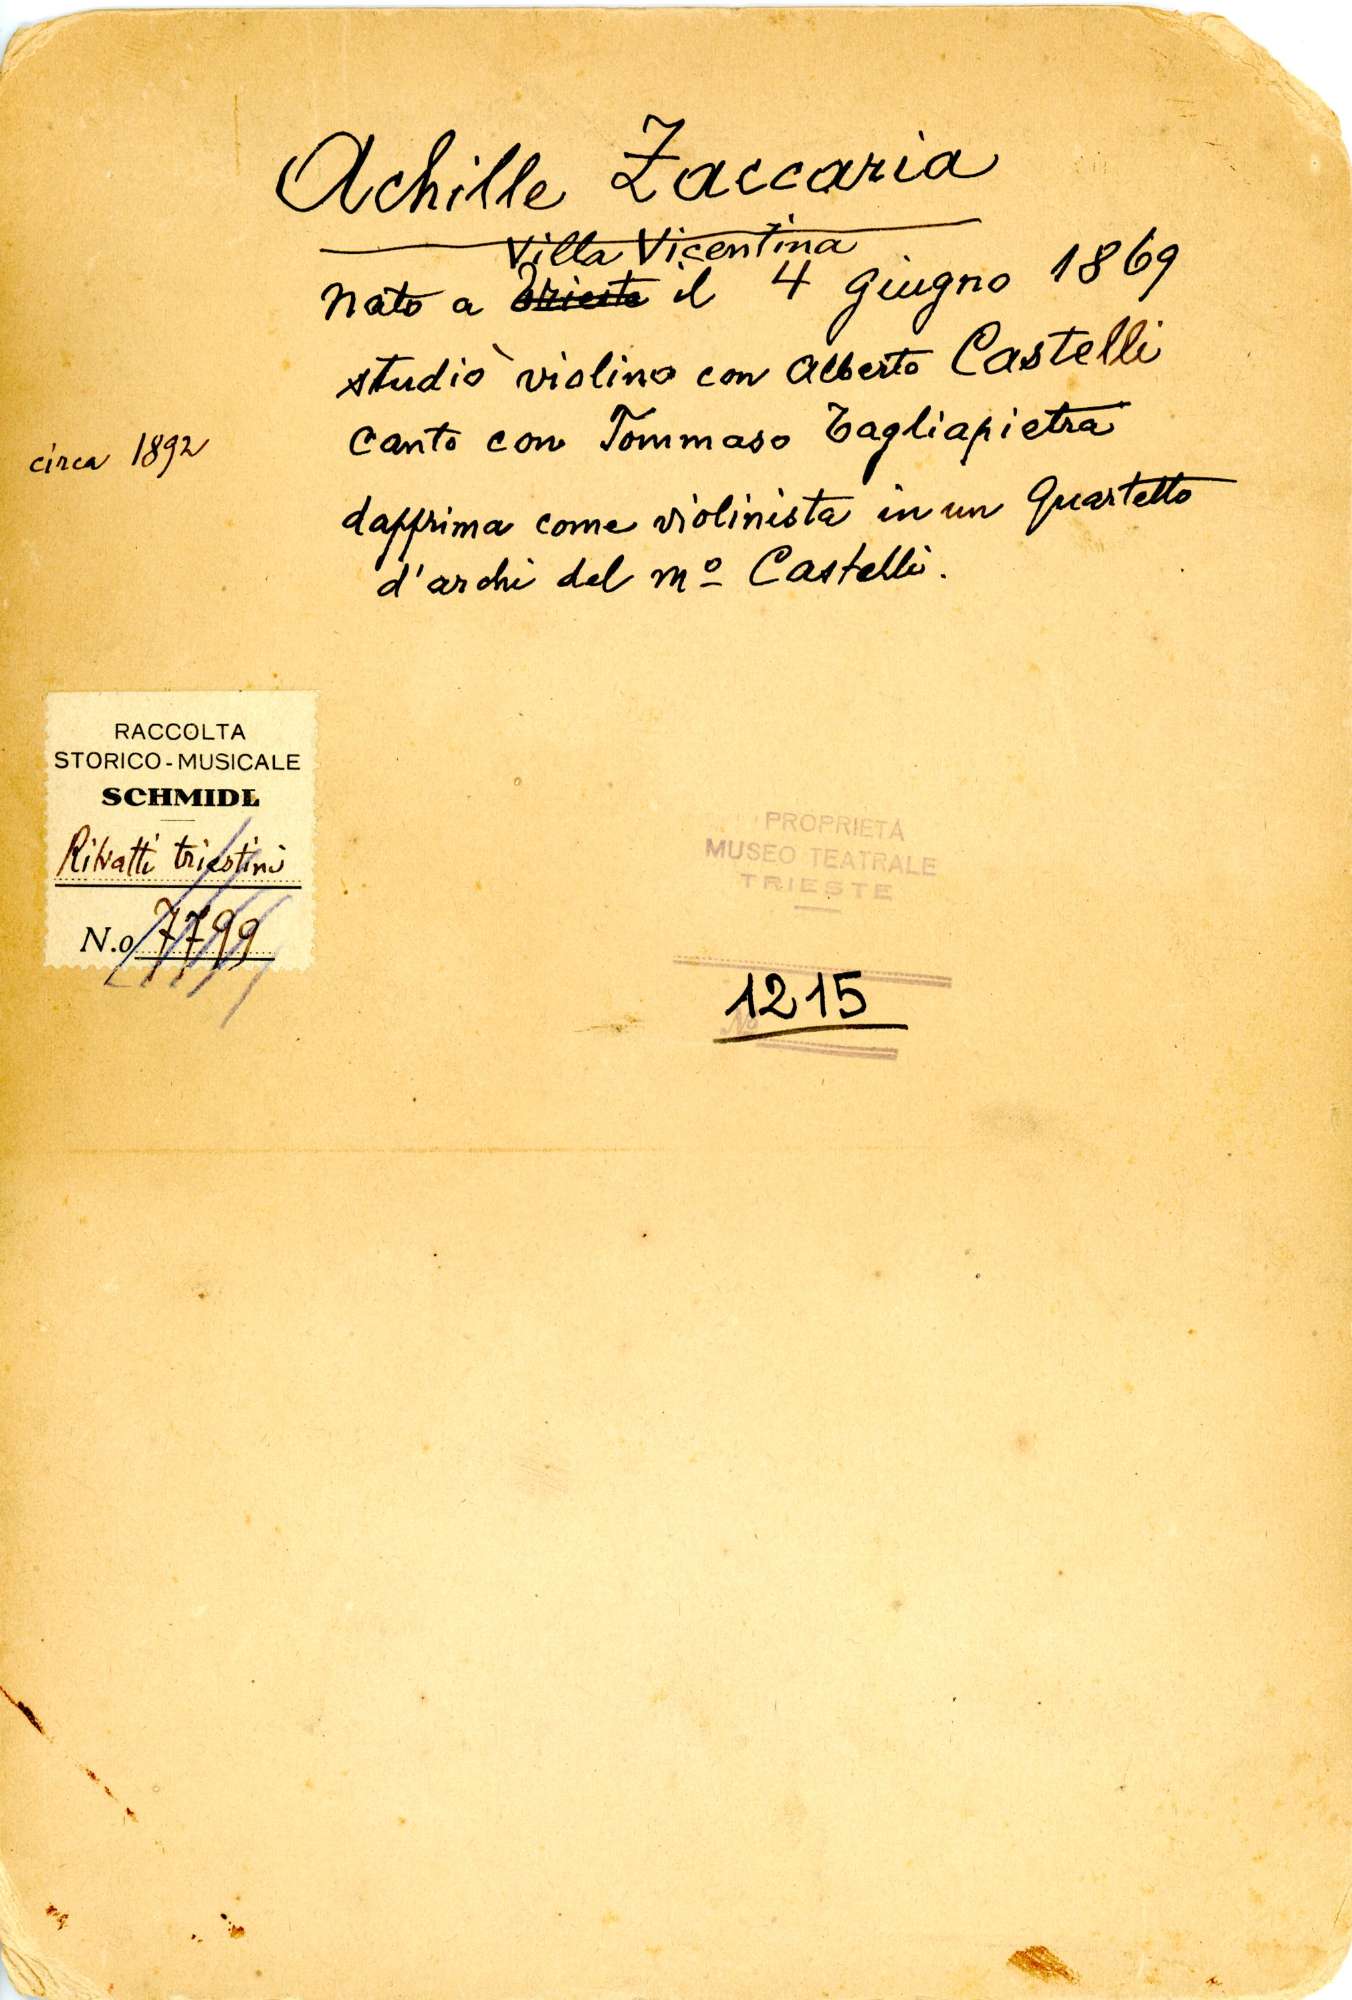 Achille Zaccaria
Villa Vicentina
Nato a Trieste il 4 Giugno 1869
studiò violino con Alberto Castelli
canto con Tommaso Tagliapietra
circa 1892
dapprima come violinista in un Quartetto
d'archi del mº Castelli.
RACCOLTA
STORICO-MUSICALE
SCHMIDL
Ritratti triestini
N.o 7799
PROPRIETÀ
MUSEO TEATRALE
TRIESTE
1215
No